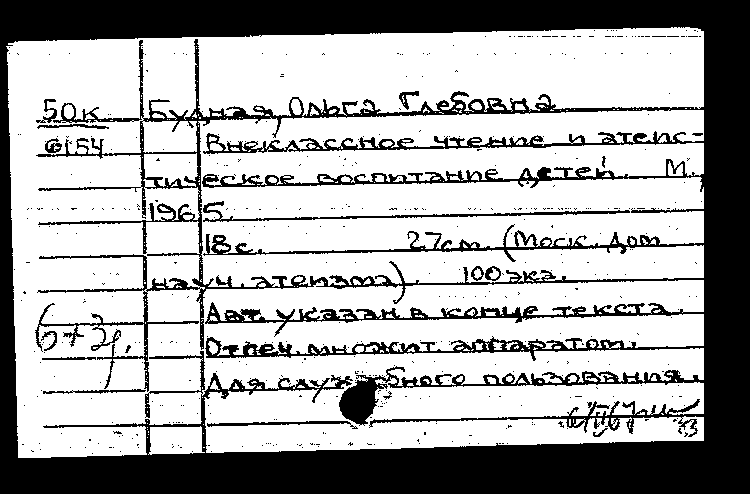 50к Будная, Ольга Глебовна
6154 Внеклассное чтение и атеис-
тическое воспитание детей. М.,
1965.
18 с. 27 см. (Моск. дом
науч. атеизма). 100 экз.
Авт. указан в конце текста.
Отпеч. множит. аппаратом.
Для служебного пользования.